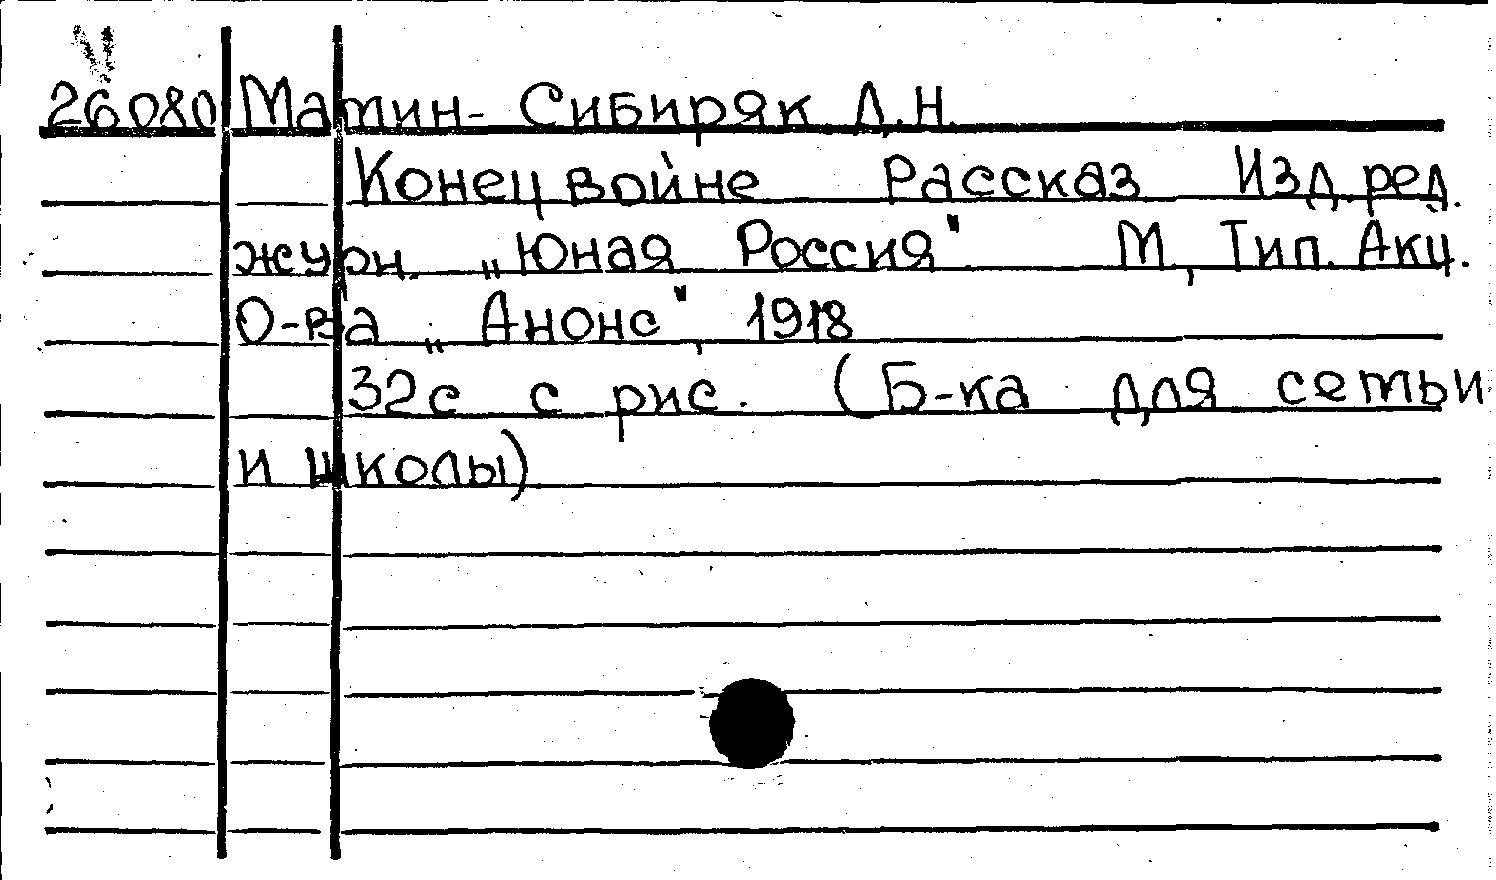 26080 Матин- Сибиряк Д.Н.
Конец войне Рассказ Изд. ред.
журн. „Юная Россия". М, Тип. Акц.
О-ва „Анонс", 1918
32с с рис. (Б-ка для сетьи
и школы)